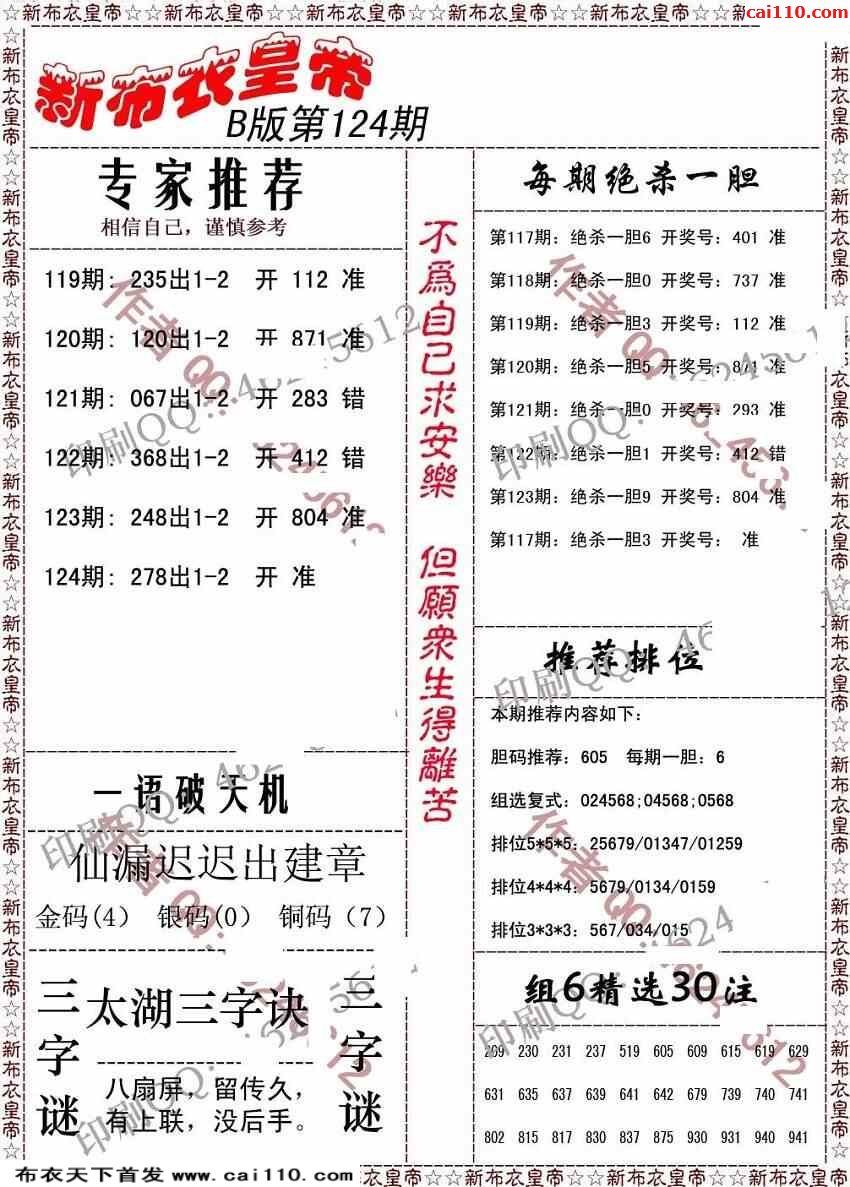 ☆新布衣皇帝☆☆新布衣皇帝☆☆新布衣皇帝☆☆新布衣皇帝☆☆新布衣皇帝☆☆新
cai110.com
新布衣皇帝
B版第124期
专家推荐
相信自己，谨慎参考
119期: 235出1-2 开 112 准
120期: 120出1-2 开 871 准
121期: 067出1-2 开 283 错
122期: 368出1-2 开 412 错
123期: 248出1-2 开 804 准
124期: 278出1-2 开 准
不爲自己求安樂 但願衆生得離苦
每期绝杀一胆
第117期: 绝杀一胆6 开奖号: 401 准
第118期: 绝杀一胆0 开奖号: 737 准
第119期: 绝杀一胆3 开奖号: 112 准
第120期: 绝杀一胆5 开奖号: 871 准
第121期: 绝杀一胆0 开奖号: 293 准
第122期: 绝杀一胆1 开奖号: 412 错
第123期: 绝杀一胆9 开奖号: 804 准
第117期: 绝杀一胆3 开奖号: 准
推荐排位
本期推荐内容如下:
胆码推荐: 605 每期一胆: 6
组选复式: 024568;04568;0568
排位5*5*5: 25679/01347/01259
排位4*4*4: 5679/0134/0159
排位3*3*3: 567/034/015
一语破天机
仙漏迟迟出建章
金码(4) 银码(0) 铜码（7）
三字谜
太湖三字诀
八扇屏，留传久，
有上联，没后手。
三字谜
组6精选30注
209 230 231 237 519 605 609 615 619 629
631 635 637 639 641 642 679 739 740 741
802 815 817 830 837 875 930 931 940 941
布衣天下首发 www.cai110.com
衣皇帝☆☆新布衣皇帝☆☆新布衣皇帝☆☆新布衣皇帝☆